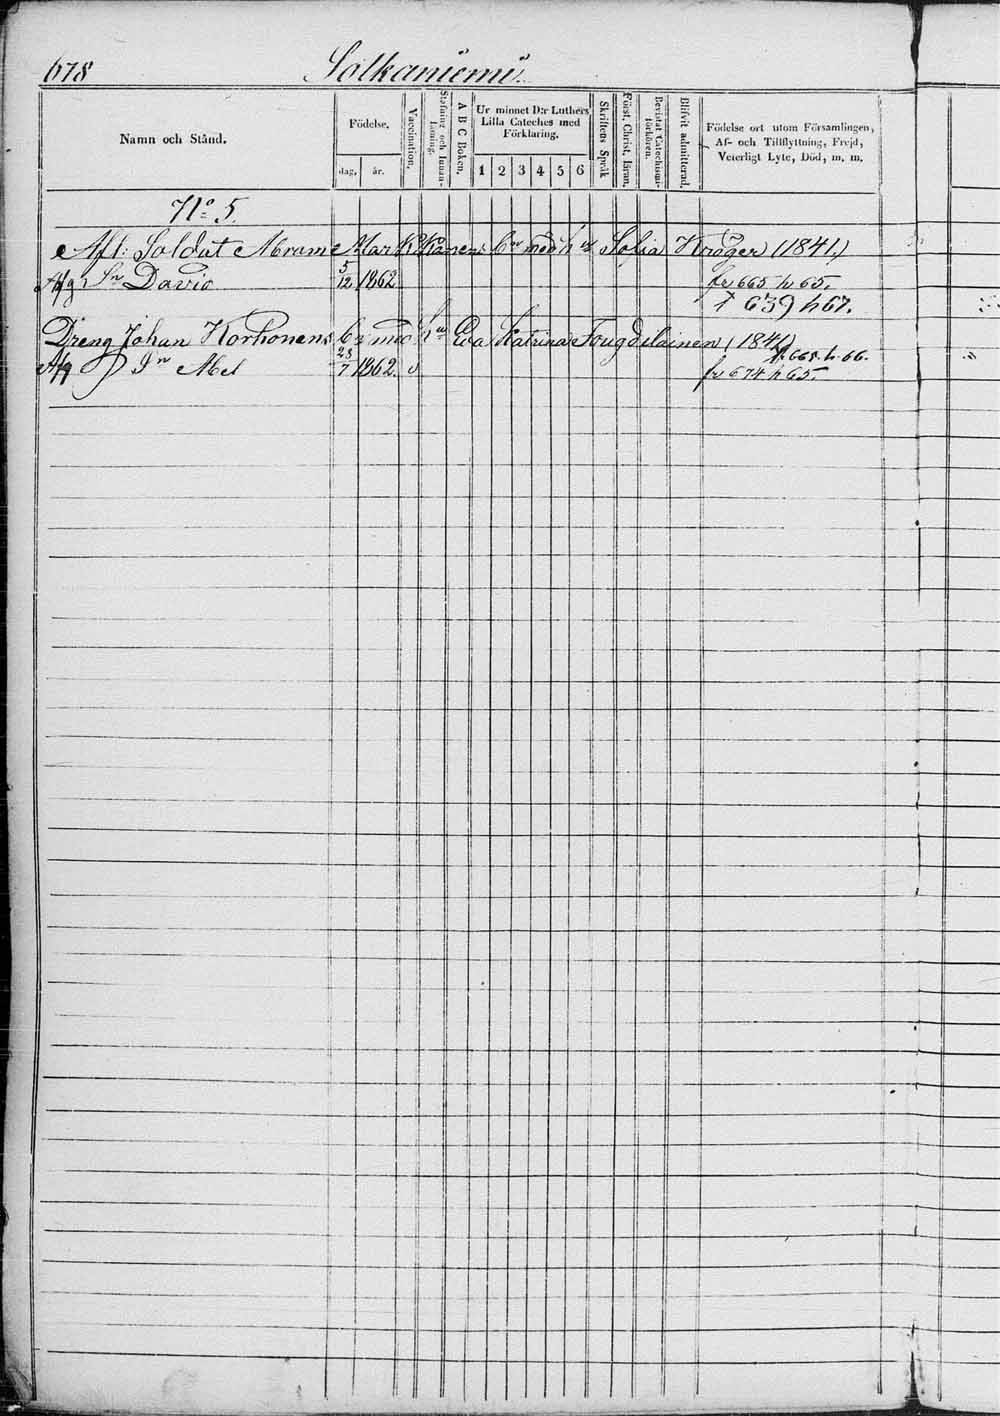 678 Solkaniemi
Namn och Stånd.
Födelse.
dag. år.
Vaccination.
Stafning och Innanläsning.
A B C Boken.
Ur minnet D:r Luthers
Lilla Cateches med
Förklaring.
1 2 3 4 5 6
Skriftens Språk
Först. Christ. läran.
Bevistat Catechismiförhören.
Blifvit admitterad.
Födelse ort utom Församlingen,
Af- och Tillflyttning, Frejd,
Veterligt Lyte, Död, m. m.
No 5.
Afl: Soldat Abram Markkanens bn med h u Sofia Kröger (1841.)
Afg Sn David 5/12 1862 fr 665 h 65.
t 639 h 67.
Dreng Johan Korhonens bn med hu Eva Katrina Fougdilainen (184
t. 665. h. 66.
Afg Sn Abel 25/7 1862. v fr 674 h 65.